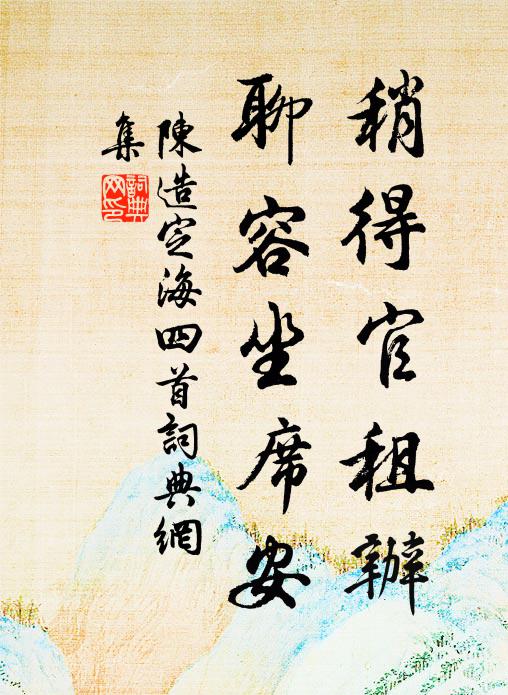 稍得官租辦
聊容坐席安
陳造定海四首詞典網
集
詞典網印